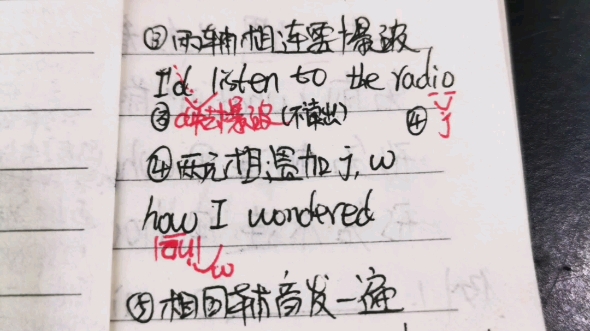 ③两辅相连需爆破
I'd listen to the radio
③d失去爆破(不读出) ④ j
④两元相遇加j,w
how I wondered
|au| w
⑤相同辅音发一遍